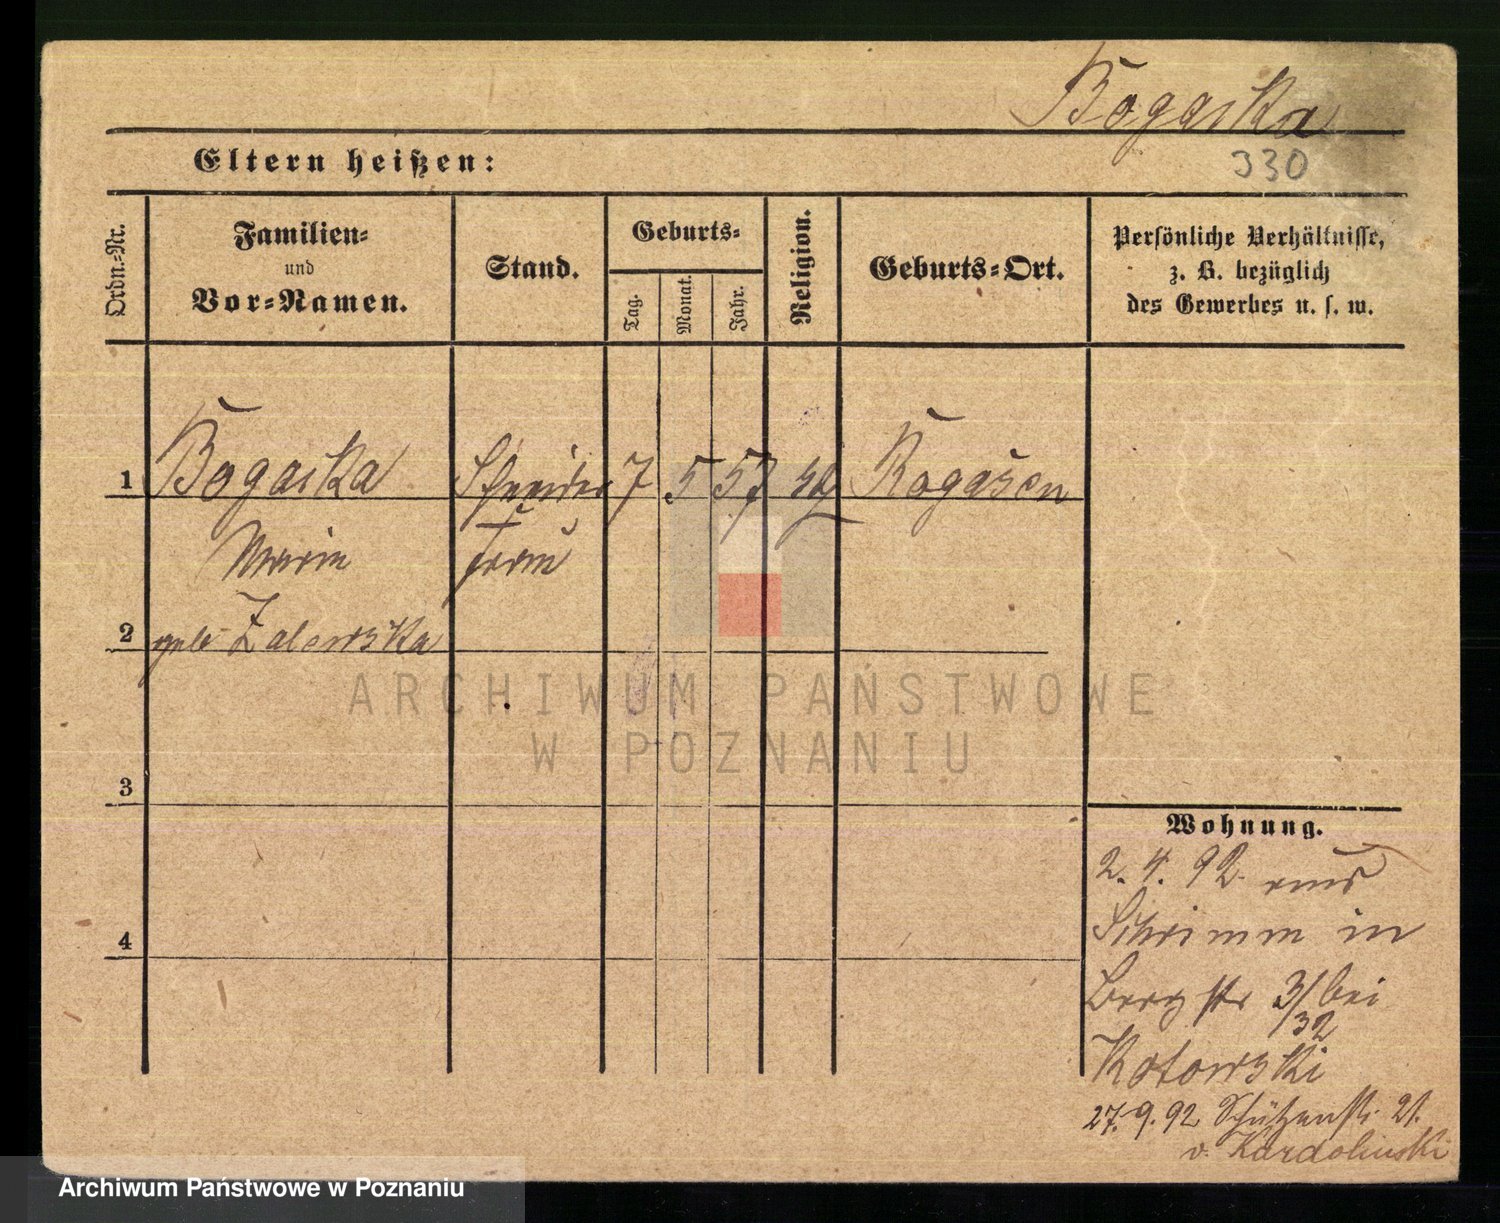 Bogacka
330
Eltern heißen:
Ordn.-Nr.
Familien-
und
Vor-Namen.
Stand.
Geburts-
Tag.
Monat.
Jahr.
Religion.
Geburts-Ort.
Persönliche Verhältnisse,
z. B. bezüglich
des Gewerbes u. s. w.
1 Bogacka Schneider 7 5 57 kth Rogasen
Marie Frau
2 geb Zalewska
ARCHIWUM PAŃSTWOWE
W POZNANIU
3
4
Wohnung.
2. 4. 92 aus
Schrimm in
Berg str 3/32 bei
Kotowski
27. 9. 92 Schützenstr. 21.
v. Kardolinski
Archiwum Państwowe w Poznaniu